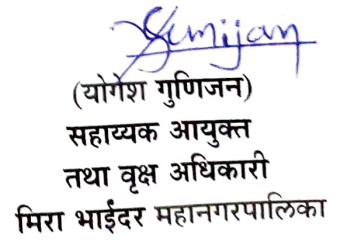 Gunijan
(योगेश गुणिजन)
सहाय्यक आयुक्त
तथा वृक्ष अधिकारी
मिरा भाईंदर महानगरपालिका